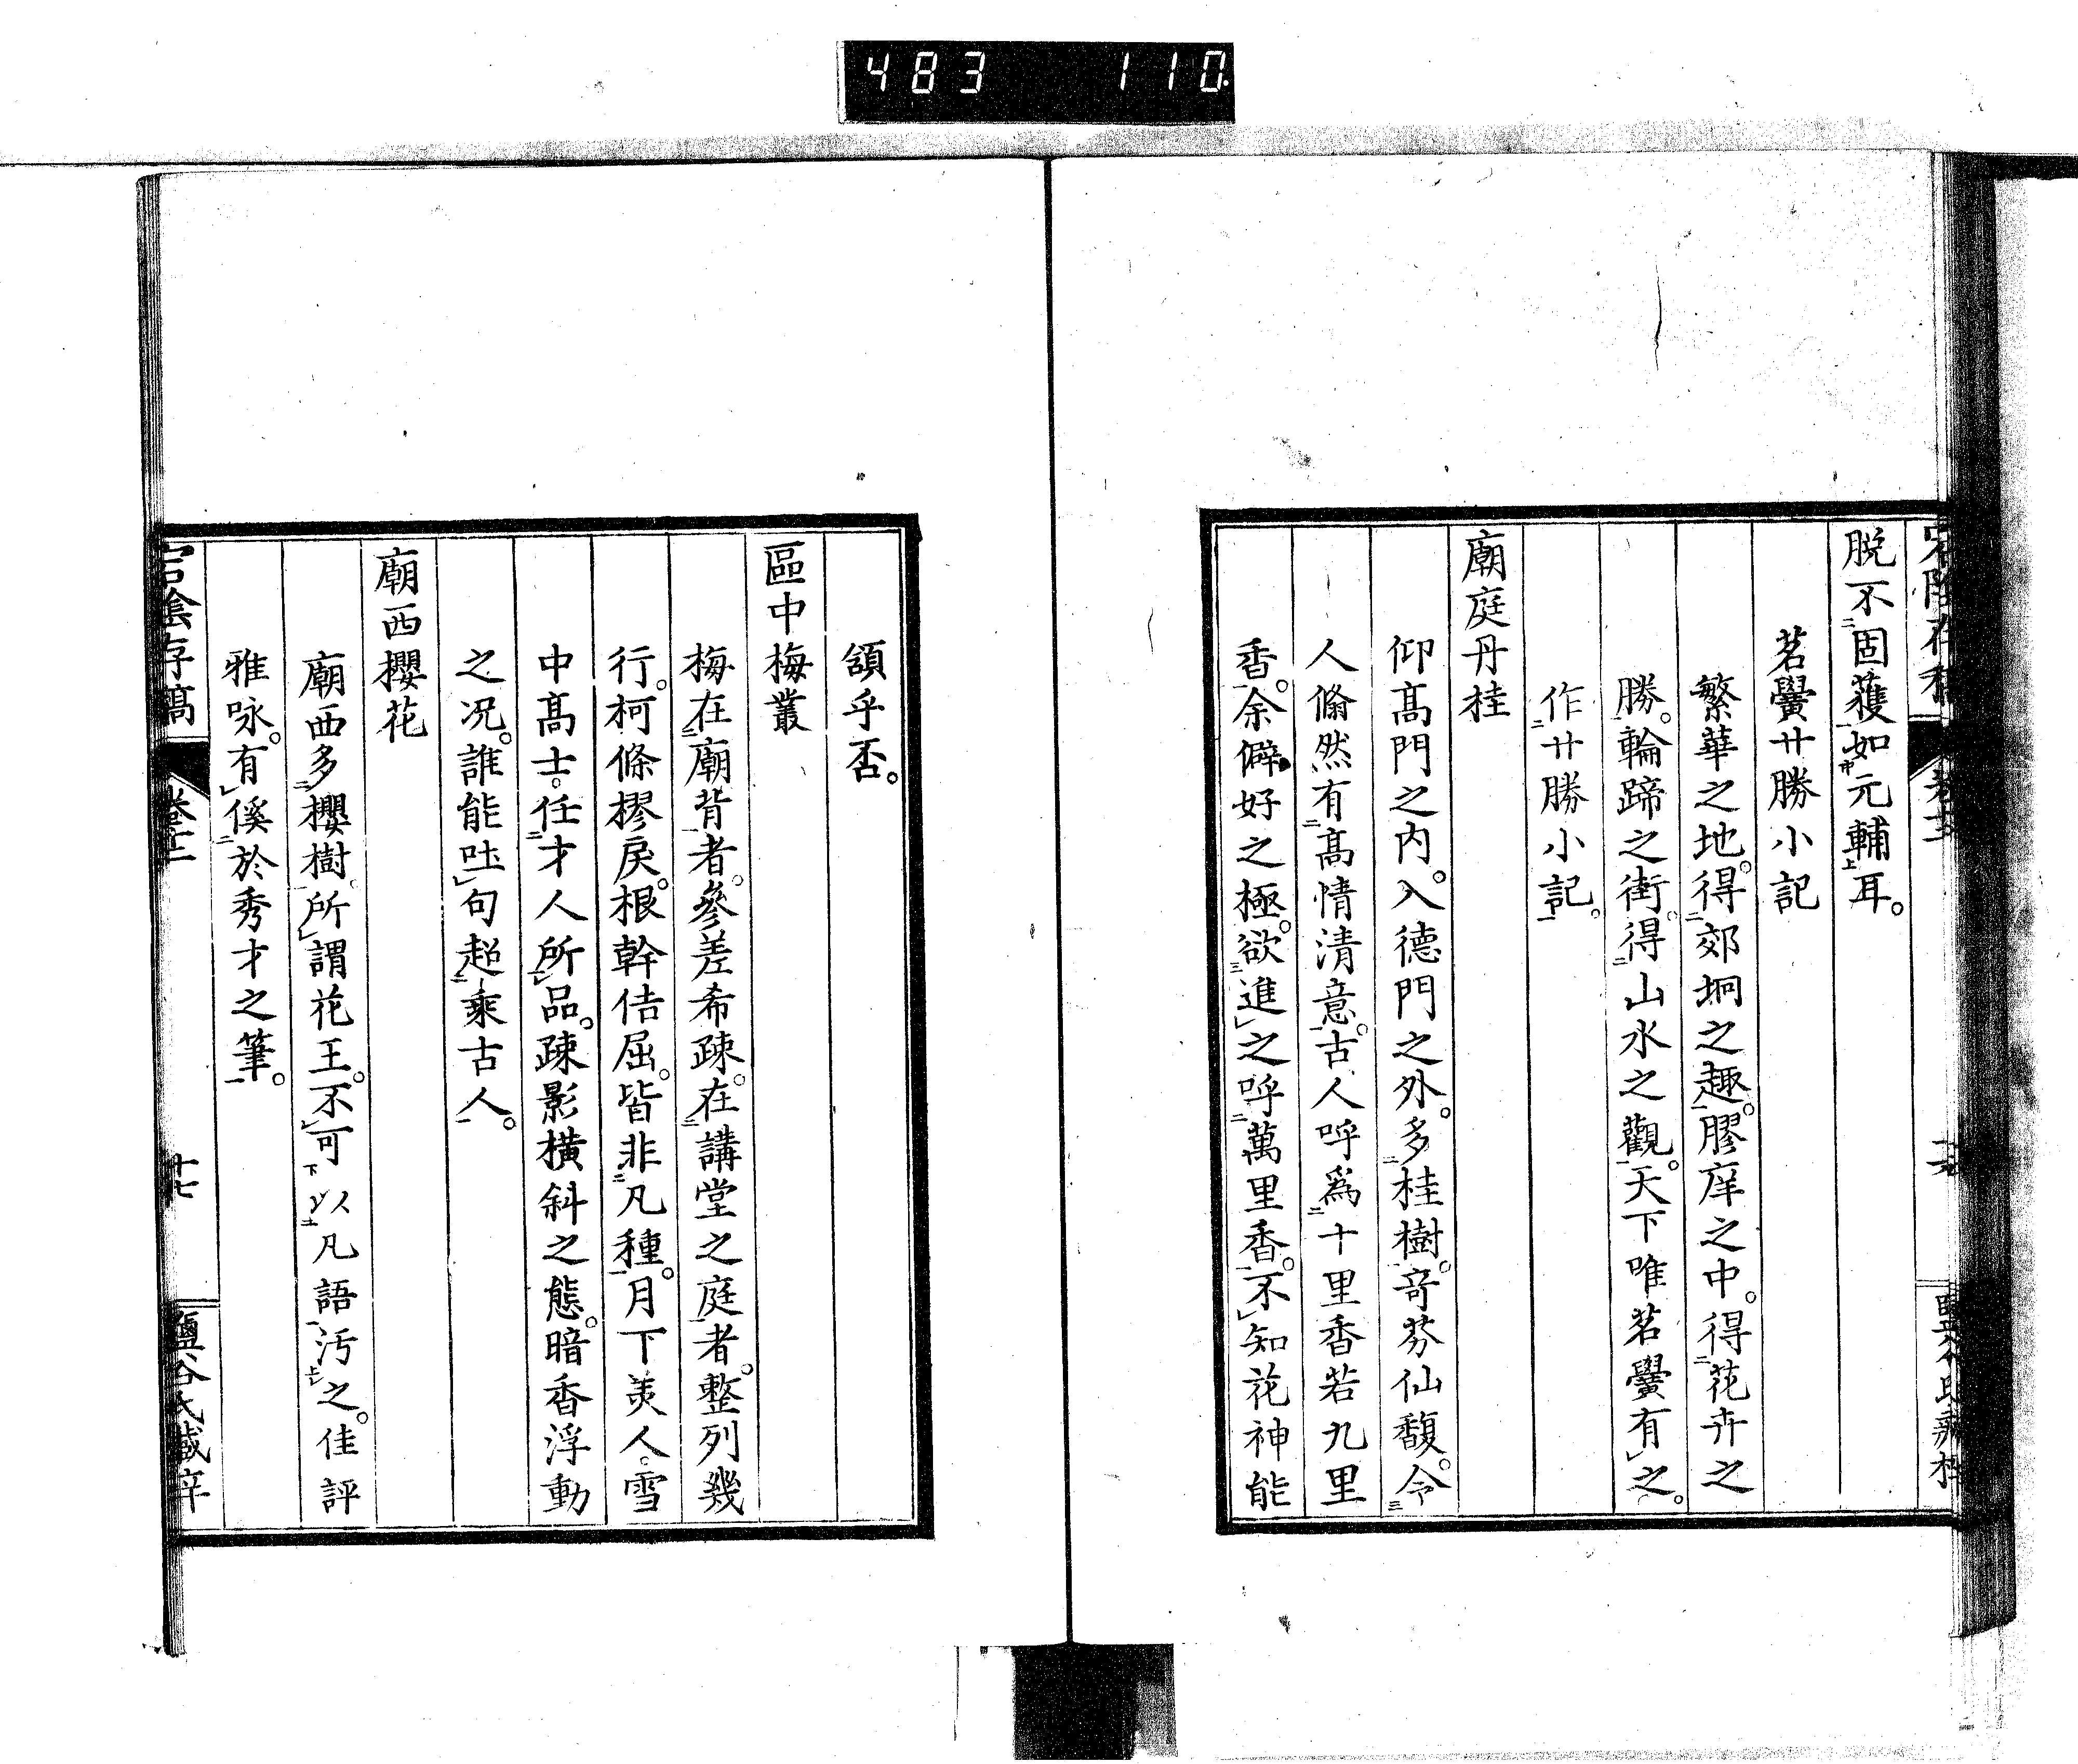 483 110
脫不固獲如元輔耳。
茗黌廿勝小記
繁華之地。得郊坰之趣。膠庠之中。得花卉之
勝。輪蹄之街。得山水之觀。天下唯茗黌有之。
作廿勝小記。
廟庭丹桂
仰高門之內。入德門之外。多桂樹。奇芬仙馥。令
人翛然有高情清意。古人呼爲十里香若九里
香。余僻好之極。欲進之呼萬里香。不知花神能
頷乎否。
區中梅叢
梅在廟背者。參差希疎。在講堂之庭者。整列幾
行。柯條樛戾。根幹佶屈。皆非凡種。月下美人。雪
中高士。任才人所品。疎影橫斜之態。暗香浮動
之况。誰能吐句超乘古人。
廟西櫻花
廟西多櫻樹。所謂花王。不可以凡語汚之。佳評
雅咏。有俟於秀才之筆。
存稿
卷十二
十七
鹽谷氏藏